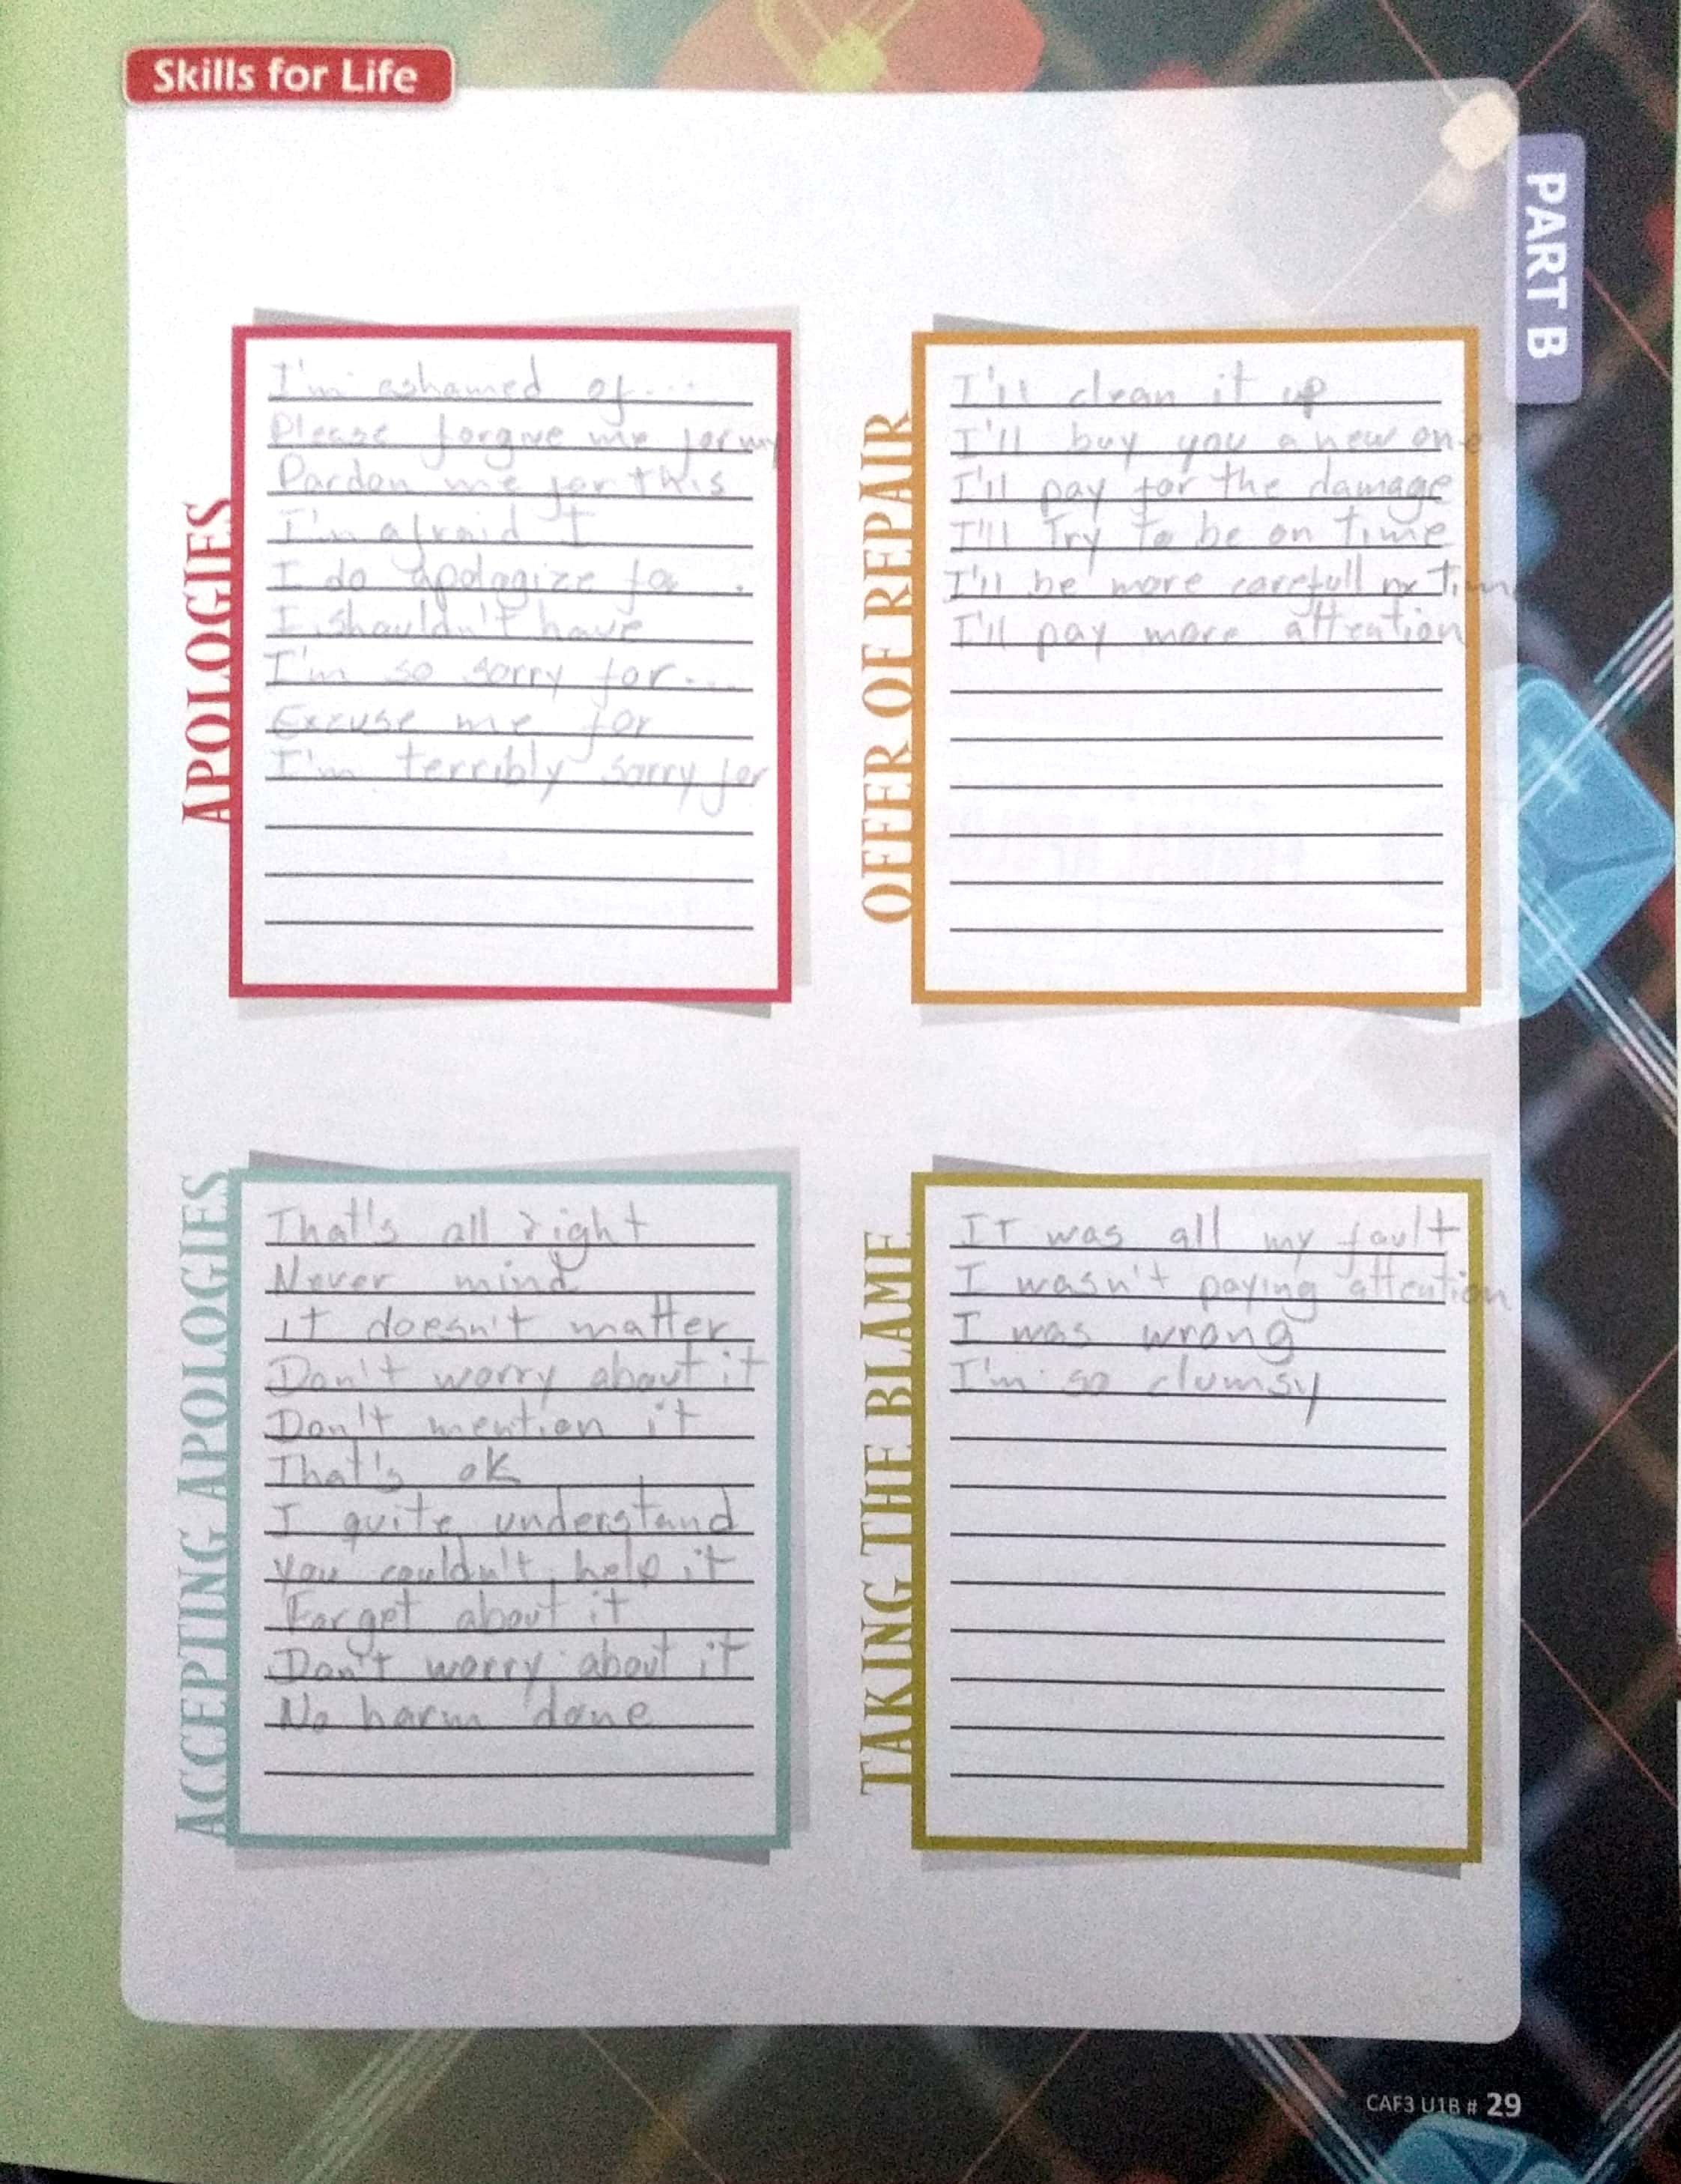 Skills for Life
PART B
APOLOGIES
I'm ashamed of...
Please forgive me for my
Pardon me for this
I'm afraid I
I do apologize for...
I shouldn't have
I'm so sorry for....
Excuse me for
I'm terribly sorry for
OFFER OF REPAIR
I'll clean it up
I'll buy you a new one
I'll pay for the damage
I'll Try to be on time
I'll be more carefull
I'll pay more attention
ACCEPTING APOLOGIES
That's all right
Never mind
it doesn't matter
Don't worry about it
Don't mention it
That's ok
I quite understand
you couldn't help it
Forget about it
Don't worry about it
No harm done
TAKING THE BLAME
IT was all my fault
I wasn't paying attention
I was wrong
I'm so clumsy
CAF3 U1B # 29